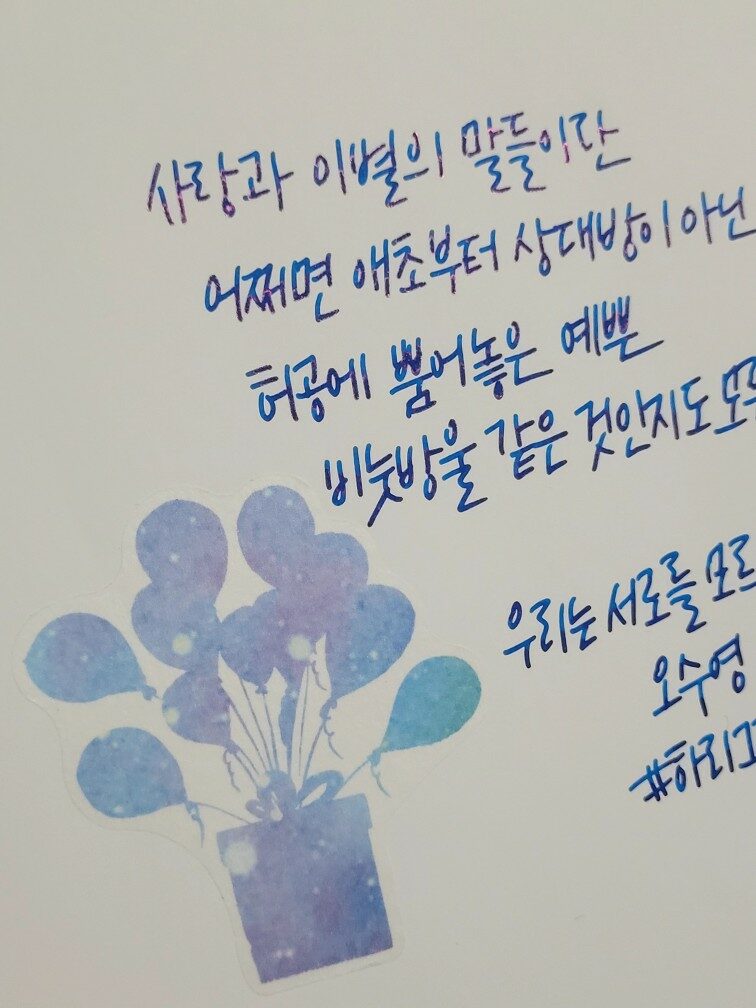 사랑과 이별의 말들이란
어쩌면 애초부터 상대방이 아닌
허공에 뿜어놓은 예쁜
비눗방울 같은 것인지도
우리는 서로를
오수영